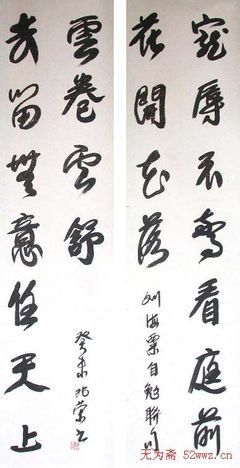 寵辱不驚看庭前
花開花落
刘海粟自勉聯句
去留無意任天上
雲卷云舒
癸未
无为斋 52wwz.cn